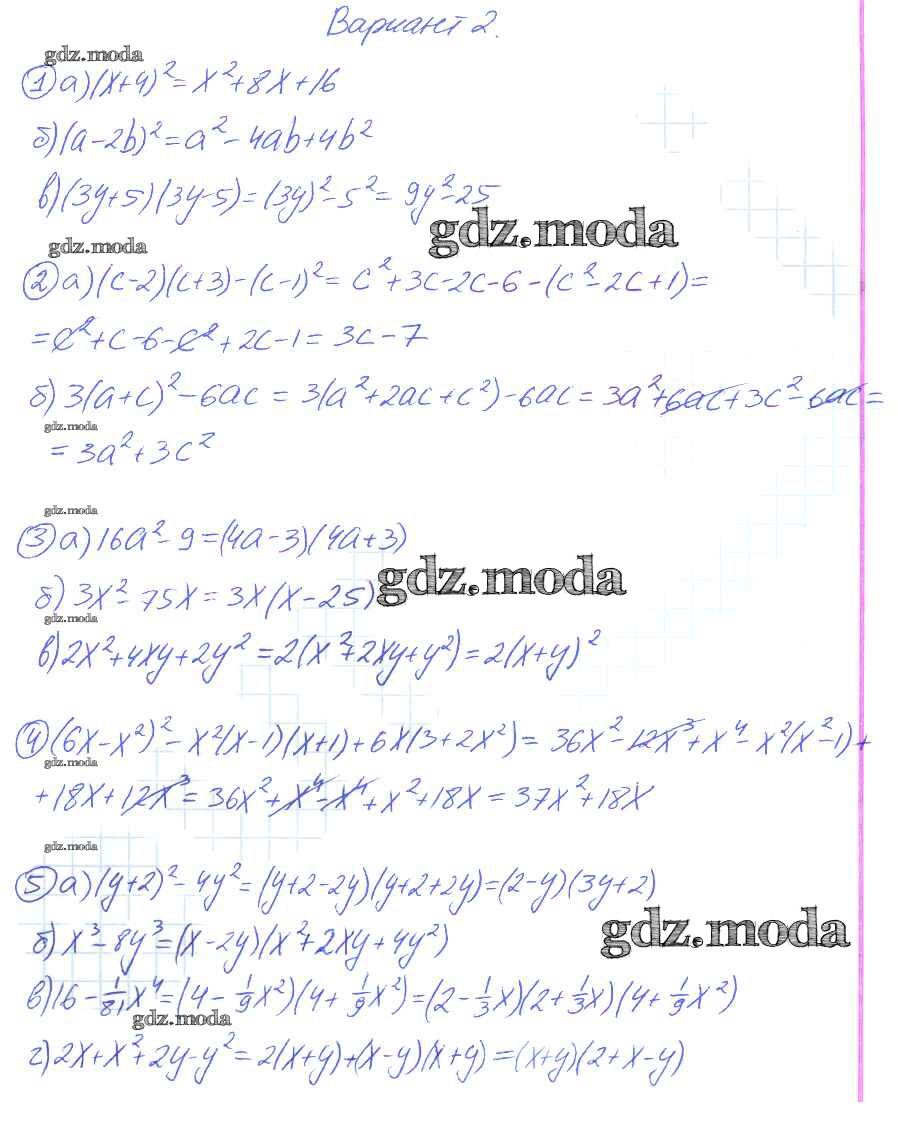 Вариант 2.
gdz.moda
① а) (x+4)² = x²+8x+16
б) (a-2b)² = a² - 4ab+4b²
в) (3y+5)(3y-5) = (3y)² - 5² = 9y²-25
gdz.moda
gdz.moda
② а) (c-2)(c+3)-(c-1)² = c²+3c-2c-6-(c²-2c+1)=
= c²+c-6-c²+2c-1 = 3c-7
б) 3(a+c)²-6ac = 3(a²+2ac+c²)-6ac = 3a²+6ac+3c²-6ac =
gdz.moda
= 3a²+3c²
gdz.moda
③ а) 16a²-9 = (4a-3)(4a+3)
б) 3x²-75x = 3x(x-25)
gdz.moda
gdz.moda
в) 2x²+4xy+2y² = 2(x²+2xy+y²) = 2(x+y)²
④ (6x-x²)²-x²(x-1)(x+1)+6x(3+2x²) = 36x²-12x³+x⁴-x²(x²-1)+
gdz.moda
+18x+12x³ = 36x²+x⁴-x⁴+x²+18x = 37x²+18x
gdz.moda
⑤ а) (y+2)²-4y² = (y+2-2y)(y+2+2y) = (2-y)(3y+2)
б) x³-8y³ = (x-2y)(x²+2xy+4y²)
gdz.moda
в) 16-1/81x⁴ = (4-1/9x²)(4+1/9x²) = (2-1/3x)(2+1/3x)(4+1/9x²)
gdz.moda
г) 2x+x²+2y-y² = 2(x+y)+(x-y)(x+y) = (x+y)(2+x-y)